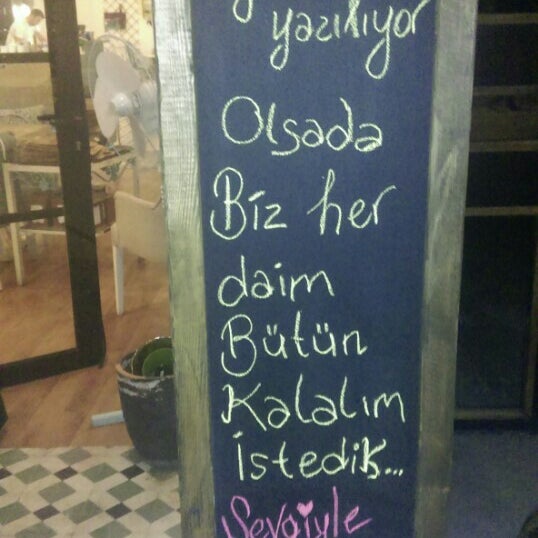 yazılıyor
Olsada
Biz her
daim
Bütün
Kalalım
istedik...
Sevgiyle